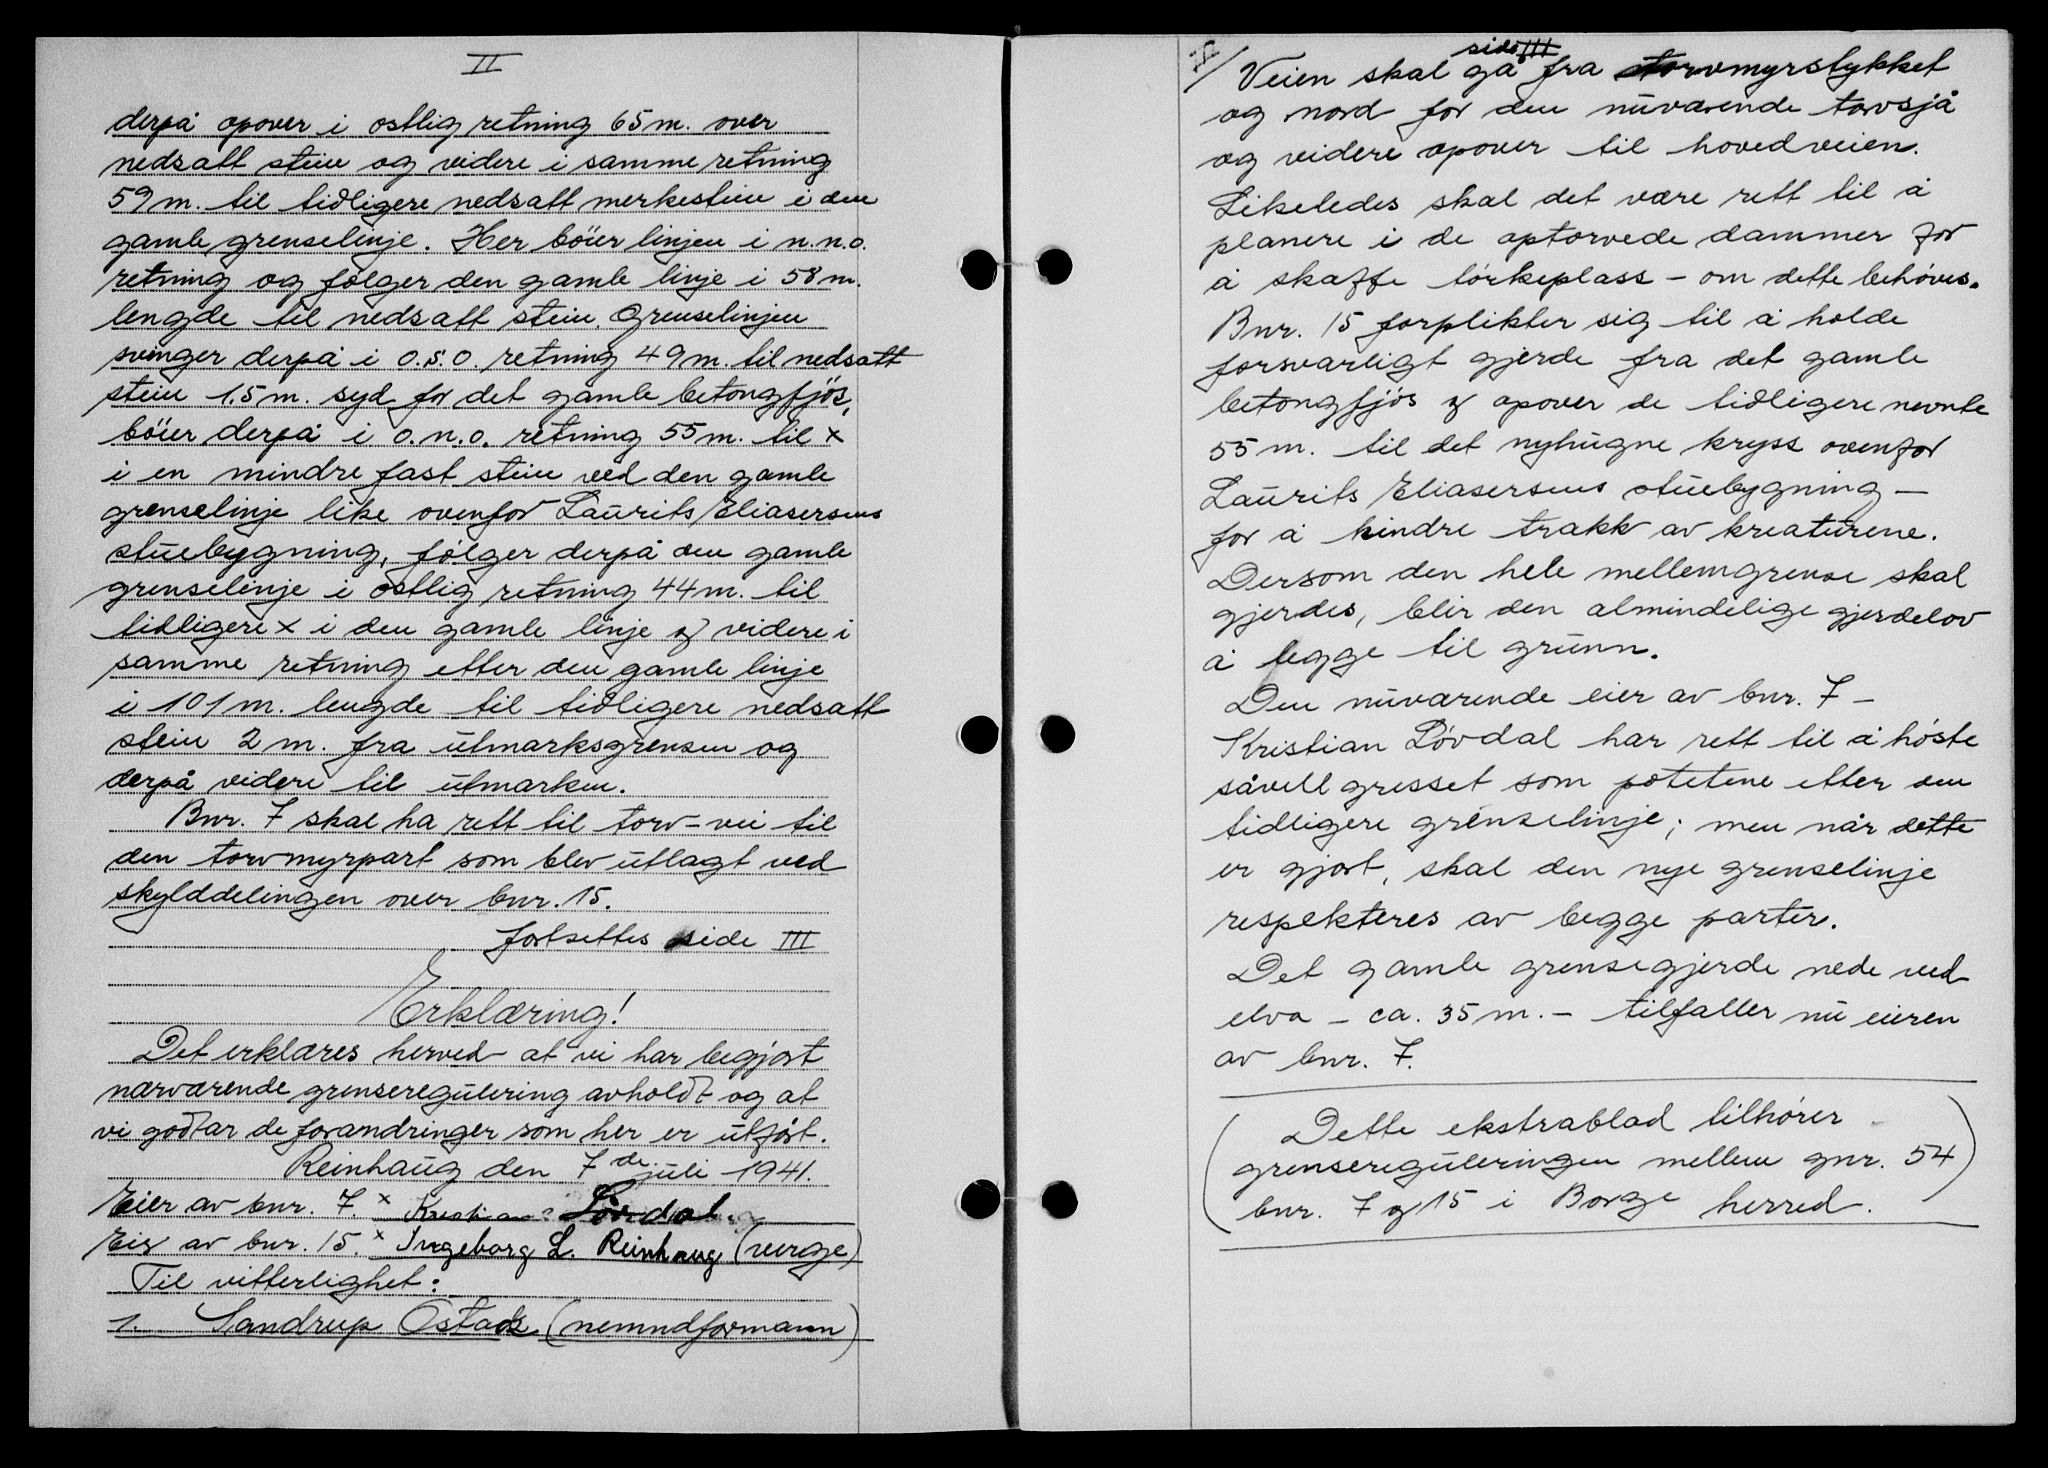 II
derpå opover i østlig retning 65 m. over
nedsatt stein og videre i samme retning
59 m. til tidligere nedsatt merkestein i den
gamle grenselinje. Her böier linjen i n.n.o.
retning og fölger den gamle linje i 58 m.
lengde til nedsatt stein. Grenselinjen
svinger derpå i o.s.o. retning 49 m. til nedsatt
stein 1,5 m. syd for det gamle betongfjös,
böier derpå i o.n.o. retning 55 m. til x
i en mindre fast stein ved den gamle
grenselinje like ovenfor Laurits Eliasersens
stuebygning, fölger derpå den gamle
grenselinje i østlig retning 44 m. til
tidligere x i den gamle linje og videre i
samme retning etter den gamle linje
i 101 m. lengde til tidligere nedsatt
stein 2 m. fra utmarksgrensen og
derpå videre til utmarken.
Bnr. 7 skal ha rett til torv-vei til
den torvmyrpart som blev utlagt ved
skylddelingen over bnr. 15.
fortsettes side III
Erklæring!
Det erklæres herved at vi har begjært
nærværende grenseregulering avholdt og at
vi godtar de forandringer som her er utført.
Reinhaug den 7de juli 1941.
Eier av bnr. 7. x Kristian Lövdal
Eier av bnr. 15. x Ingeborg L. Reinhaug (verge)
Til vitterlighet:
1. Sandrup Østad (nemndformann)
side III
Veien skal gå fra torvmyrstykket
og nord for den nuværende torvsjå
og videre opover til hovedveien.
Likeledes skal det være rett til å
planere i de optorvede dammer for
å skaffe törkeplass – om dette behöves.
Bnr. 15 forplikter sig til å holde
forsvarligt gjerde fra det gamle
betongfjös og opover de tidligere nevnte
55 m. til det nyhugne kryss ovenfor
Laurits Eliasersens stuebygning –
for å hindre trakk av kreaturene.
Dersom den hele mellemgrense skal
gjerdes, blir den almindelige gjerdelov
å legge til grunn.
Den nuværende eier av bnr. 7 –
Kristian Lövdal har rett til å höste
såvell gresset som potetene etter den
tidligere grenselinje; men når dette
er gjort, skal den nye grenselinje
respekteres av begge parter.
Det gamle grensegjerde nede ved
elva – ca. 35 m. – tilfaller nu eieren
av bnr. 7.
(Dette ekstrablad tilhører
grensereguleringen mellem gnr. 54
bnr. 7 og 15 i Borge herred.)